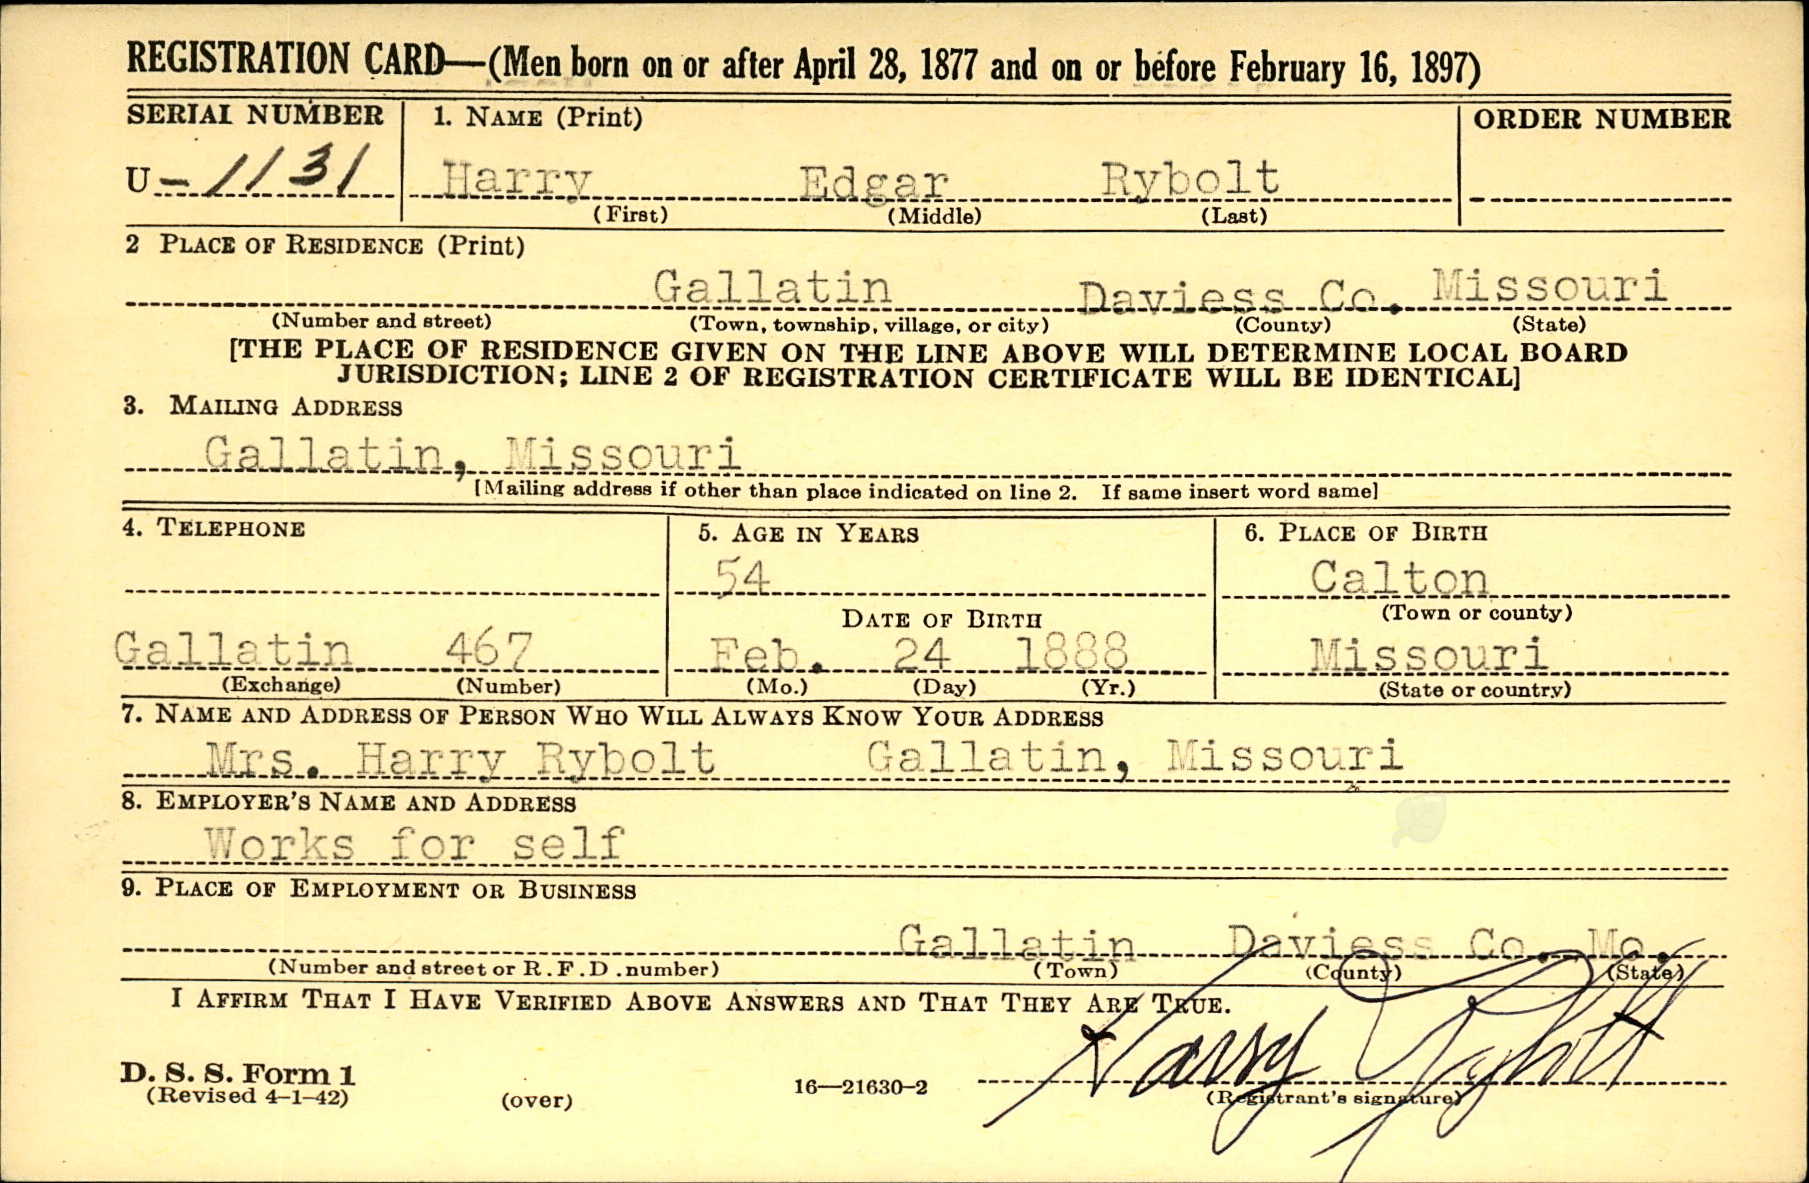 REGISTRATION CARD—(Men born on or after April 28, 1877 and on or before February 16, 1897)
SERIAL NUMBER 1. NAME (Print) ORDER NUMBER
U-1131 Harry Edgar Rybolt
(First) (Middle) (Last)
2 PLACE OF RESIDENCE (Print)
Gallatin Daviess Co. Missouri
(Number and street) (Town, township, village, or city) (County) (State)
[THE PLACE OF RESIDENCE GIVEN ON THE LINE ABOVE WILL DETERMINE LOCAL BOARD
JURISDICTION; LINE 2 OF REGISTRATION CERTIFICATE WILL BE IDENTICAL]
3. MAILING ADDRESS
Gallatin, Missouri
[Mailing address if other than place indicated on line 2. If same insert word same]
4. TELEPHONE 5. AGE IN YEARS 6. PLACE OF BIRTH
54 Calton
DATE OF BIRTH (Town or county)
Gallatin 467 Feb. 24 1888 Missouri
(Exchange) (Number) (Mo.) (Day) (Yr.) (State or country)
7. NAME AND ADDRESS OF PERSON WHO WILL ALWAYS KNOW YOUR ADDRESS
Mrs. Harry Rybolt Gallatin, Missouri
8. EMPLOYER'S NAME AND ADDRESS
Works for self
9. PLACE OF EMPLOYMENT OR BUSINESS
Gallatin Daviess Co. Mo.
(Number and street or R.F.D. number) (Town) (County) (State)
I AFFIRM THAT I HAVE VERIFIED ABOVE ANSWERS AND THAT THEY ARE TRUE.
Harry Rybolt
D. S. S. Form 1
(Revised 4-1-42) (over) 16—21630-2 (Registrant's signature)